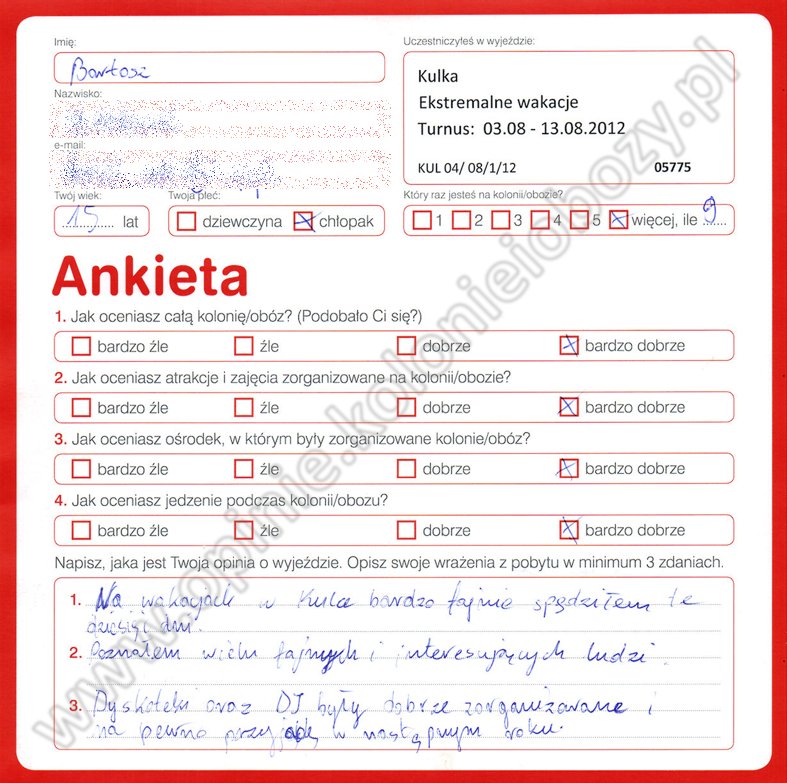 Imię:
Uczestniczyłeś w wyjeździe:
Bartosz
Kulka
Ekstremalne wakacje
Turnus: 03.08 - 13.08.2012
KUL 04/ 08/1/12 05775
Nazwisko:
e-mail:
Twój wiek:
Twoja płeć:
Który raz jesteś na kolonii/obozie?
15 lat
dziewczyna chłopak
1 2 3 4 5 więcej, ile 9
Ankieta
1. Jak oceniasz całą kolonię/obóz? (Podobało Ci się?)
bardzo źle źle dobrze bardzo dobrze
2. Jak oceniasz atrakcje i zajęcia zorganizowane na kolonii/obozie?
bardzo źle źle dobrze bardzo dobrze
3. Jak oceniasz ośrodek, w którym były zorganizowane kolonie/obóz?
bardzo źle źle dobrze bardzo dobrze
4. Jak oceniasz jedzenie podczas kolonii/obozu?
bardzo źle źle dobrze bardzo dobrze
Napisz, jaka jest Twoja opinia o wyjeździe. Opisz swoje wrażenia z pobytu w minimum 3 zdaniach.
1. Na wakacjach w Kulce bardzo fajnie spędziłem te
dziesięć dni.
2. Poznałem wielu fajnych i interesujących ludzi.
3. Dyskoteki oraz DJ były dobrze zorganizowane i
na pewno przyjadę w następnym roku.
www.opinie.kolonieiobozy.pl